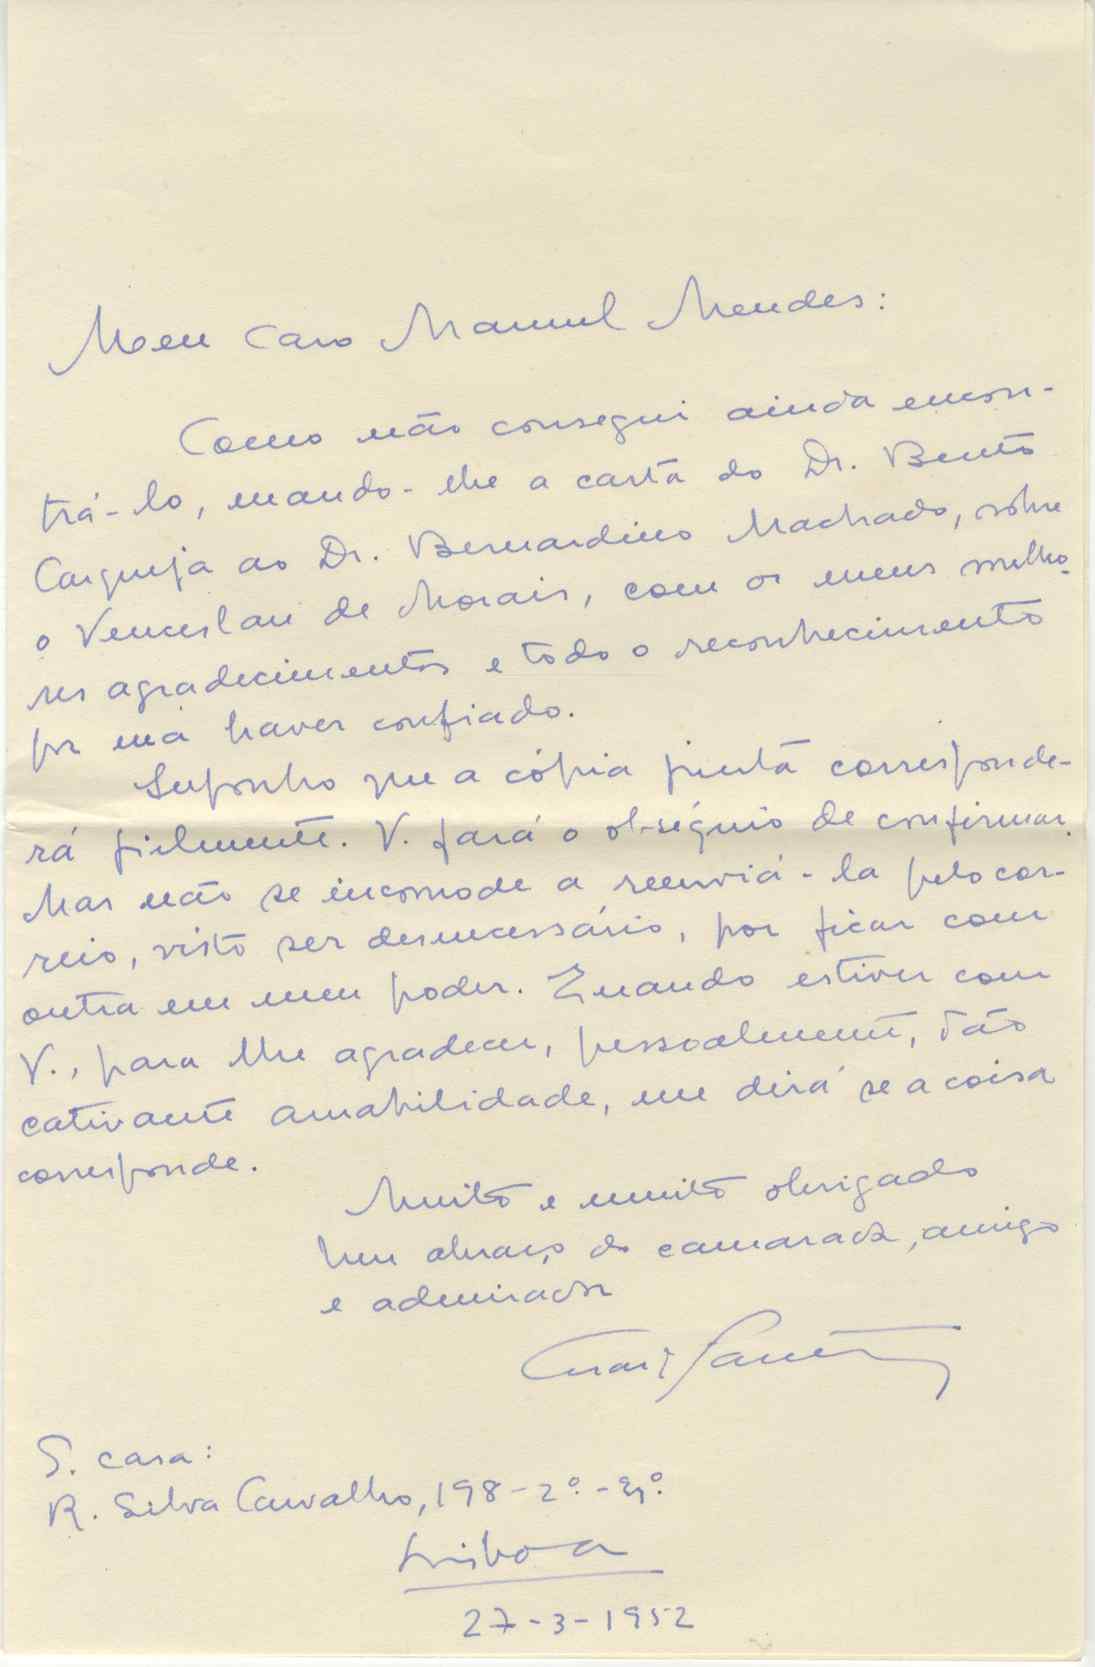 Meu Caro Manuel Mendes:
Como não consegui ainda encon-
trá-lo, mando-lhe a carta do Dr. Bento
Carqueja ao Dr. Bernardino Machado, sôbre
o Venceslau de Morais, com os meus melho-
res agradecimentos e todo o reconhecimento
por ma haver confiado.
Suponho que a cópia junta corresponde-
rá fielmente. V. fará o obséquio de confirmar.
Mas não se incomode a reenviá-la pelo cor-
reio, visto ser desnecessário, por ficar com
outra em meu poder. Quando estiver com
V., para lhe agradecer, pessoalmente, tão
cativante amabilidade, me dirá se a coisa
corresponde.
Muito e muito obrigado
Um abraço do camarada, amigo
e admirador
S. casa:
R. Silva Carvalho, 198-2º.-Eº.
Lisboa
27-3-1952